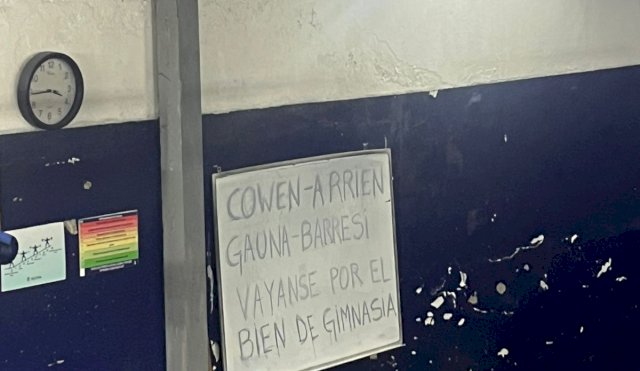 COWEN-ARRIEN
GAUNA-BARRESI
VAYANSE POR EL
BIEN DE GIMNASIA